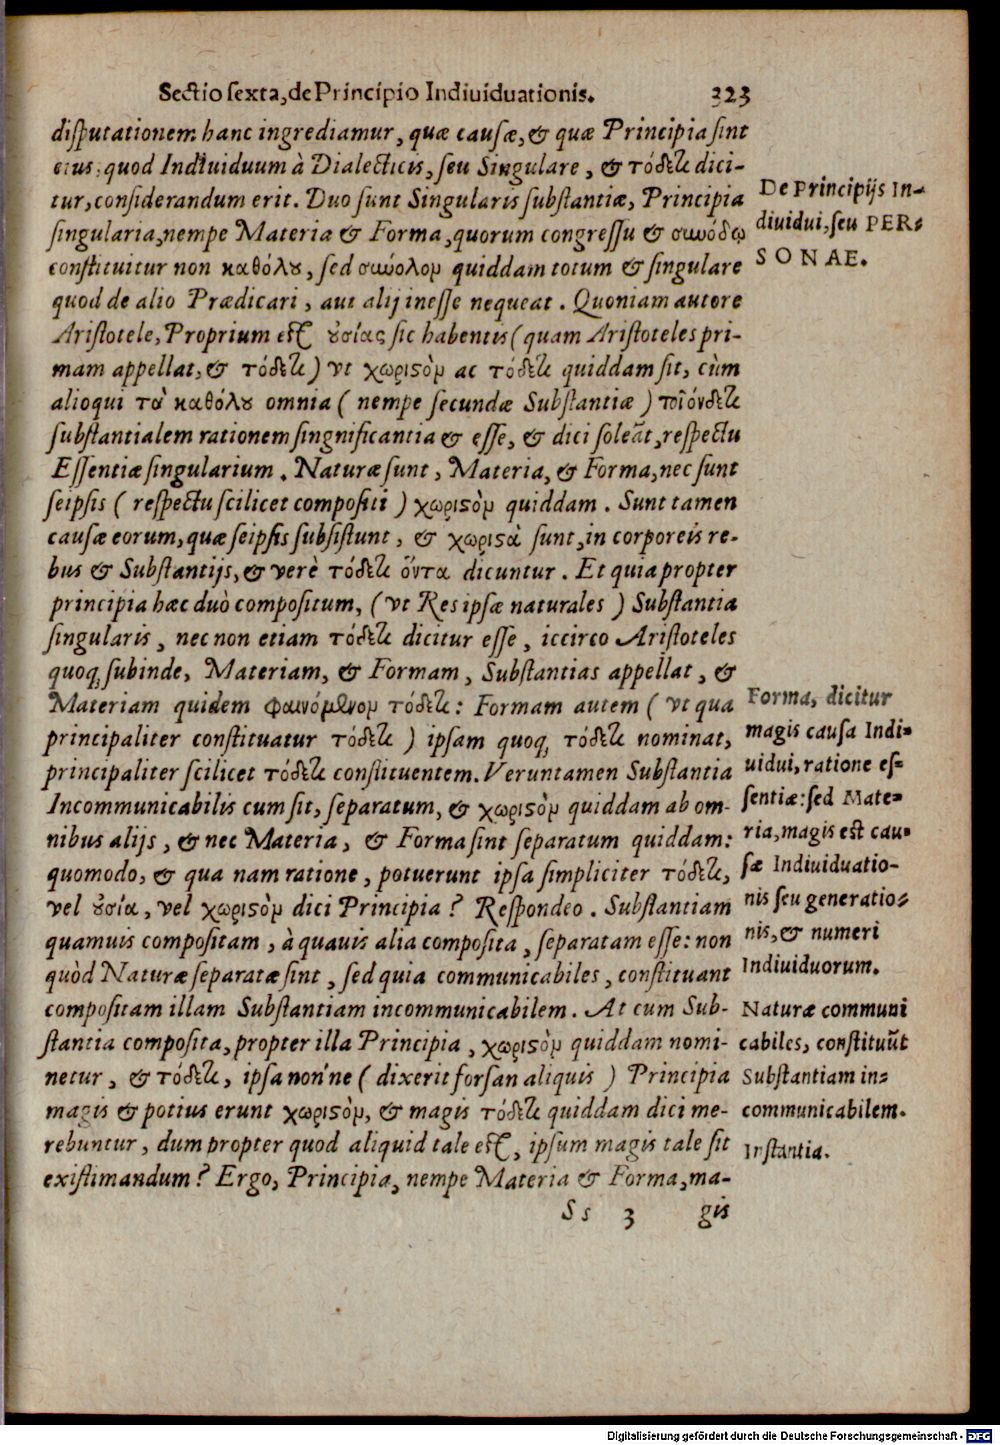 Sectio sexta, de Principio Indiuiduationis. 323
disputationem hanc ingrediamur, quæ causæ, & quæ Principia sint
eius, quod Indiuiduum à Dialecticis, seu Singulare, & τόδε τι dici-
tur, considerandum erit. Duo sunt Singularis substantiæ, Principia
singularia, nempe Materia & Forma, quorum congressu & συνόδῳ
constituitur non καθόλου, sed σύνολον quiddam totum & singulare
quod de alio Prædicari, aut alij inesse nequeat. Quoniam autore
Aristotele, Proprium est οὐσίας sic habentis (quam Aristoteles pri-
mam appellat, & τόδε τι) vt χωριστὸν ac τόδε τι quiddam sit, cùm
alioqui τὰ καθόλου omnia (nempe secundæ Substantiæ) τοιόνδε τι
substantialem rationem singnificantia & esse, & dici soleãt, respectu
Essentiæ singularium. Naturæ sunt, Materia, & Forma, nec sunt
seipsis (respectu scilicet compositi) χωριστὸν quiddam. Sunt tamen
causæ eorum, quæ seipsis subsistunt, & χωριστὰ sunt, in corporeis re-
bus & Substantijs, & verè τόδε τι ὄντα dicuntur. Et quia propter
principia hæc duò compositum, (vt Res ipsæ naturales) Substantia
singularis, nec non etiam τόδε τι dicitur esse, iccirco Aristoteles
quoq; subinde, Materiam, & Formam, Substantias appellat, &
Materiam quidem φαινόμενον τόδε τι: Formam autem (vt qua
principaliter constituatur τόδε τι) ipsam quoq; τόδε τι nominat,
principaliter scilicet τόδε τι constituentem. Veruntamen Substantia
Incommunicabilis cum sit, separatum, & χωριστὸν quiddam ab om-
nibus alijs, & nec Materia, & Forma sint separatum quiddam:
quomodo, & qua nam ratione, potuerunt ipsa simpliciter τόδε τι,
vel οὐσία, vel χωριστὸν dici Principia? Respondeo. Substantiam
quamuis compositam, à quauis alia composita, separatam esse: non
quòd Naturæ separatæ sint, sed quia communicabiles, constituant
compositam illam Substantiam incommunicabilem. At cum Sub-
stantia composita, propter illa Principia, χωριστὸν quiddam nomi-
netur, & τόδε τι, ipsa non'ne (dixerit forsan aliquis) Principia
magis & potius erunt χωριστὸν, & magis τόδε τι quiddam dici me-
rebuntur, dum propter quod aliquid tale est, ipsum magis tale sit
existimandum? Ergo, Principia, nempe Materia & Forma, ma-
Ss 3 gis
De Principijs In-
diuidui, seu PER-
SONAE.
Forma, dicitur
magis causa Indi-
uidui, ratione es-
sentiæ: sed Mate-
ria, magis est cau-
sæ Indiuiduatio-
nis seu generatio-
nis, & numeri
Indiuiduorum.
Naturæ communi
cabiles, constituũt
Substantiam in-
communicabilem.
Instantia.
Digitalisierung gefördert durch die Deutsche Forschungsgemeinschaft - DFG